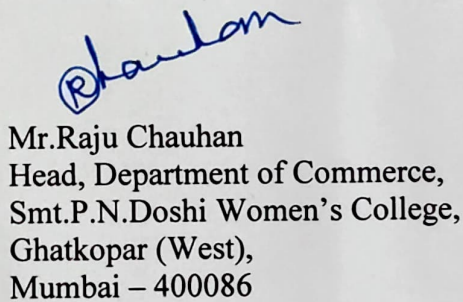 Rchauhan
Mr.Raju Chauhan
Head, Department of Commerce,
Smt.P.N.Doshi Women's College,
Ghatkopar (West),
Mumbai – 400086